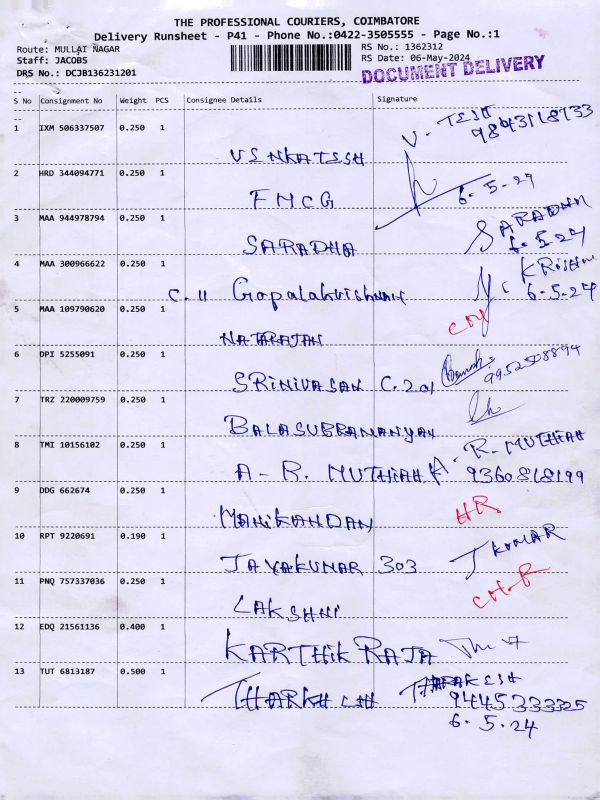 THE PROFESSIONAL COURIERS, COIMBATORE
Delivery Runsheet - P41 - Phone No.:0422-3505555 - Page No.:1
Route: MULLAI NAGAR
Staff: JACOBS
DRS No.: DCJB136231201
RS No.: 1362312
RS Date: 06-May-2024
DOCUMENT DELIVERY
S No Consignment No Weight PCS Consignee Details Signature
1 IXM 506337507 0.250 1 VENKATESH
2 HRD 344094771 0.250 1 FMCG 6.5.24
3 MAA 944978794 0.250 1 SARADHA SARADHA 6.5.24
4 MAA 300966622 0.250 1 C.11 Gopalakrishnan 6.5.24
5 MAA 109790620 0.250 1 NATARAJAN
6 DPI 5255091 0.250 1 SRINIVASAN C.201
7 TRZ 220009759 0.250 1 BALASUBRAMANYAN
8 TMI 10156102 0.250 1 A-R. MUTHIAH A.R-MUTHIAH 9360818199
9 DDG 662674 0.250 1 MANIKANDAN HR
10 RPT 9220691 0.190 1 JAYAKUMAR 303 J KUMAR
11 PNQ 757337036 0.250 1 LAKSHMI
12 EDQ 21561136 0.400 1 KARTHIK RAJA
13 TUT 6813187 0.500 1 6.5.24